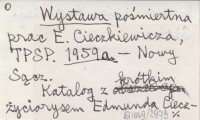 Wystawa pośmiertna
prac E. Cieczkiewicza,
TPSP. 1959a. — Nowy
Sącz.
Katalog z krótkim
życiorysem Edmunda Ciecz-